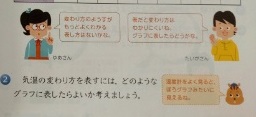 変わり方のようすが
もっとよくわかる
表し方はないかな。
表だと変わり方は
わかりにくいね。
グラフに表したらどうかな。
ひかるさん
2
気温の変わり方を表すには、どのような
グラフに表したらよいか考えましょう。
温度計をよく見ると、
ぼうグラフみたいに
見えるね。